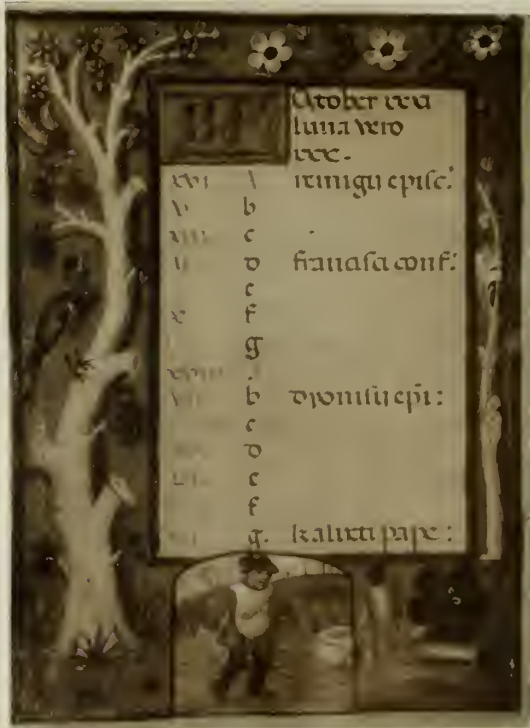 October xxxi
luna vero
xxx.
xvi remigii episc.
v b
xiii c
ii d francisci conf:
e
x f
g
xviii
vii b dyonisii epi:
c
d
e
f
g. kalixti pape: